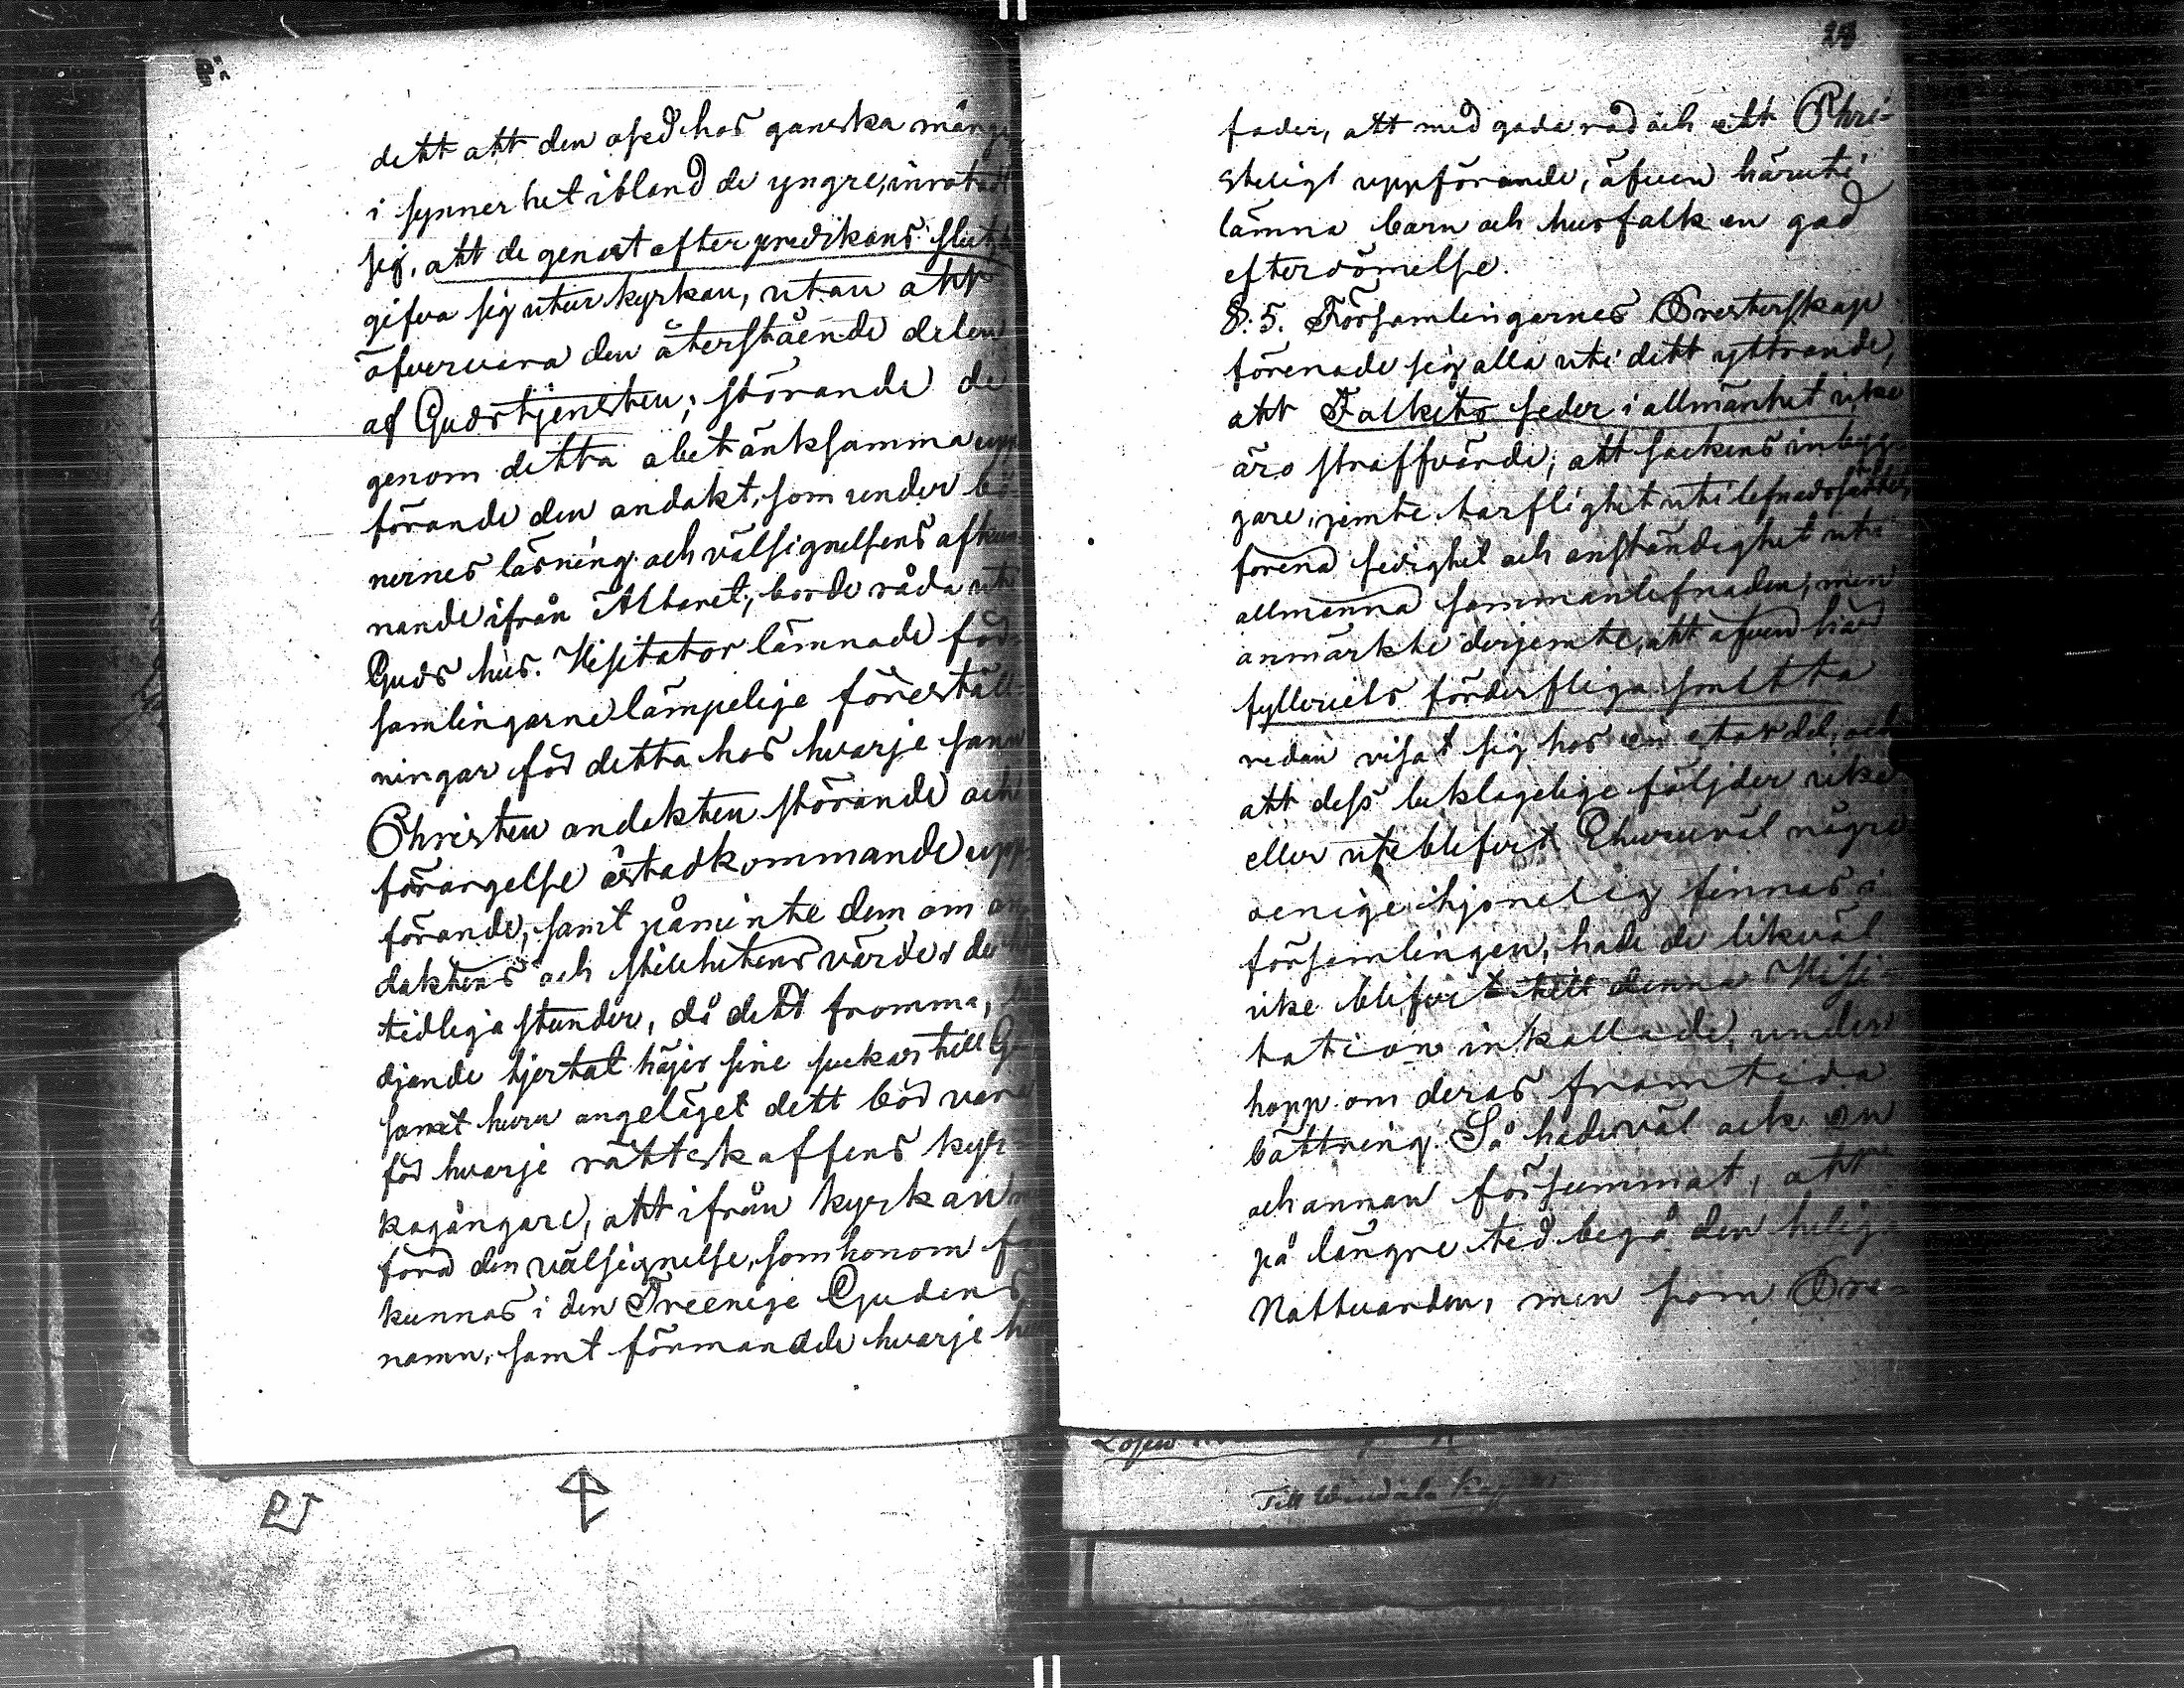 dett att den osed hos ganska många
i synnerhet ibland de yngre, inrotadt
sig, att de genast efter predikans slut,
gifva sig utur kyrkan, utan att
öfvervara den återstående delen
af Gudstjensten; störande de
genom detta obetänksamma upp
förande den andakt, som under bö-
nernes läsning och välsignelsens afkun
nande ifrån Altaret, borde råda uti
Guds hus. Visitator lämnade för-
samlingarne lämpelige föreställ-
ningar för detta hos hvarje sann
Christen andakten störande och
förargelse åstadkommande upp-
förande, samt påminte dem om an
daktens och stillhetens värde i de
tidliga stunder, då dett fromma,
djande hjertat höjer sine suckar till
samt huru angeläget dett bör vara
för hvarje rättskaffens kyr-
kogångare, att ifrån kyrkan
föra den välsignelse, som honom
kunnas i den Treenige Gudens
namn, samt förmanade hvarje
28
fader, att med goda råd och ett Chri-
steligt uppförande, äfven häruti
lämna barn och husfolk en god
efterdömelse.
§. 5. Församlingarnes Presterskap
förenade sig alla uti dett yttrande,
att Folkets seder i allmänhet icke
äro straffvärde; att sockens inbygg-
gare, jemte tarflighet uti lefnadssättet,
förena sedighet och anständighet uti
allmänna sammanlefnaden, men
anmärkte derjemte, att äfven här
fylleriets förderfliga smitta
redan visat sig hos en stor del, och
att dess beklagelige följder icke
eller uteblifvit. Ehuruväl några
oenige hjonelag finnas i
församlingen, hade de likväl
icke blifvit till denna Visi-
tation inkallade, under
hopp om deras framtida
bättring. Så hade väl ock en
och annan försummat, att
på längre tid begå den heliga
Nattvarden, men som Pre-
Till